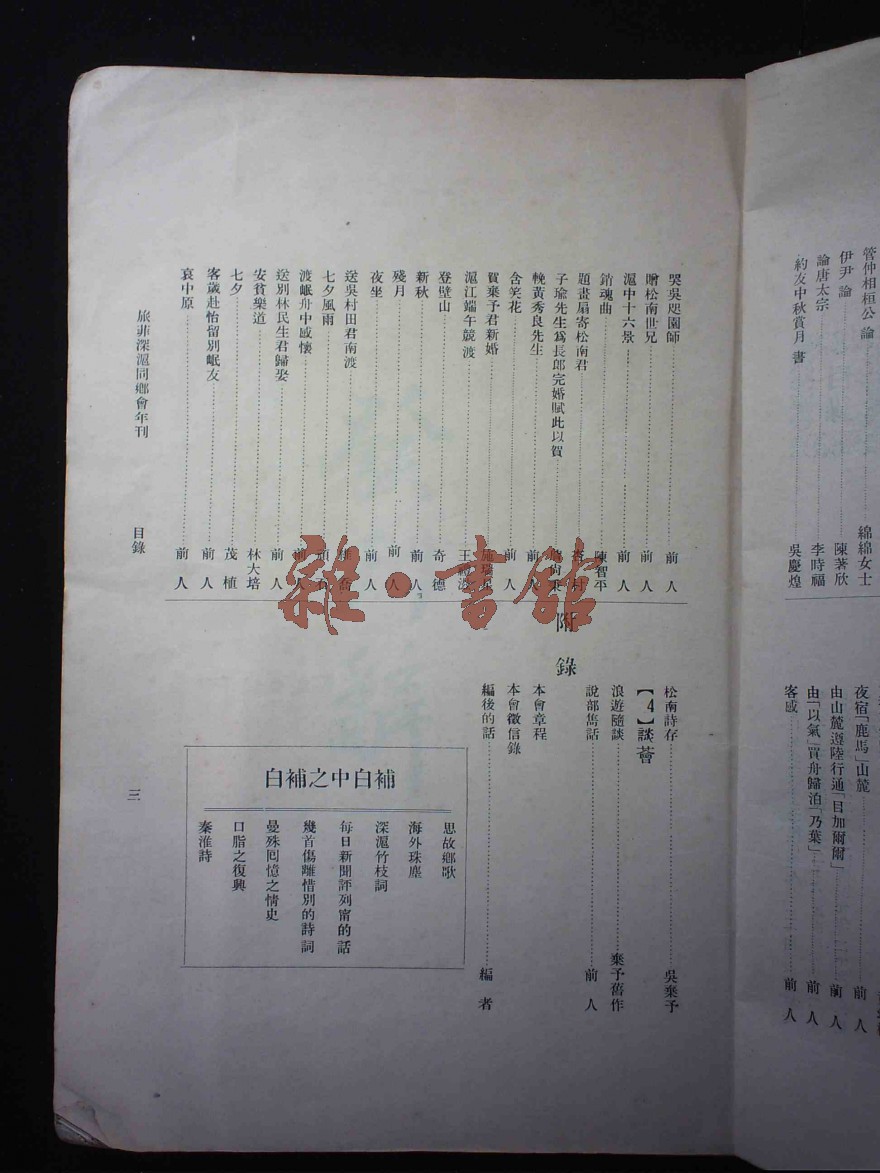 管仲相桓公論
伊尹論
陳著欣
論唐太宗
李時福
約友中秋賞月書
吳慶煌
綿綿女士
夜宿「鹿馬」山麓
前人
由山麓遵陸行通「目加爾爾」
前人
由「以氣」買舟歸泊「乃葉」
前人
客感
前人
哭吳咫園師
前人
贈松南世兄
前人
滬中十六景
前人
銷魂曲
陳智平
題畫扇寄松南君
子瑜先生爲長郎完婚賦此以賀
輓黃秀良先生
前人
含笑花
前人
賀棄予君新婚
滬江端午競渡
登壁山
奇德
新秋
前人
殘月
前人
夜坐
前人
送吳村田君南渡
七夕風雨
渡岷舟中感懷
前人
送別林民生君歸娶
前人
安貧樂道
林大培
七夕
茂植
客歲赴怡留別岷友
前人
哀中原
前人
旅菲深滬同鄉會年刊
目錄
三
松南詩存
吳棄予
【4】談薈
浪遊隨談
棄予舊作
說部雋話
前人
附錄
本會章程
本會徵信錄
編後的話
編者
白補之中白補
思故鄉歌
海外珠塵
深滬竹枝詞
每日新聞評列甯的話
幾首傷離惜別的詩詞
曼殊回憶之情史
口脂之復興
秦淮詩
雜·書館